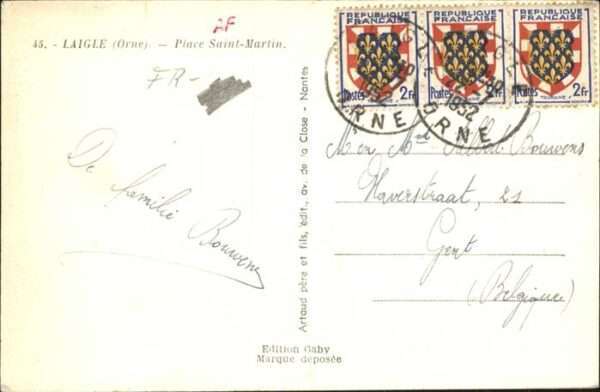 AF
45. - LAIGLE (Orne). - Place Saint-Martin.
FR-
De familie
Bouwens
Artaud père et fils, édit., av. de la Close - Nantes
Edition Gaby
Marque déposée
REPUBLIQUE FRANÇAISE
Postes 2Fr
REPUBLIQUE FRANÇAISE
Postes 2Fr
REPUBLIQUE FRANÇAISE
Postes 2Fr
1952
ORNE
1952
ORNE
Bouwens
Haverstraat, 21
Gent
(Belgique)